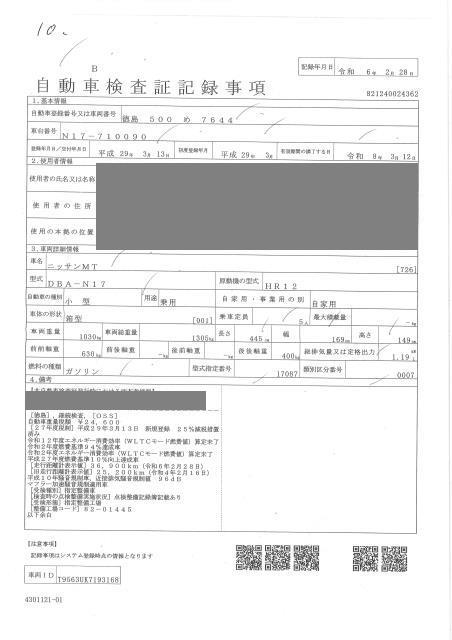 10.
B
自動車検査証記録事項
記録年月日 令和 6年 2月 28日
821240024362
1.基本情報
自動車登録番号又は車両番号 徳島 500 め 7644
車台番号 N17-710090
登録年月日/交付年月日 平成 29年 3月 13日 初度登録年月 平成 29年 3月 有効期間の満了する日 令和 8年 3月 12日
2.使用者情報
使用者の氏名又は名称
使用者の住所
使用の本拠の位置
3.車両詳細情報
車名 ニッサンMT [726]
型式 DBA-N17 原動機の型式 HR12
自動車の種別 小型 用途 乗用 自家用・事業用の別 自家用
車体の形状 箱型 [001] 乗車定員 5人 最大積載量 -kg
車両重量 1030kg 車両総重量 1305kg 長さ 445cm 幅 169cm 高さ 149cm
前前軸重 630kg 前後軸重 -kg 後前軸重 -kg 後後軸重 400kg 総排気量又は定格出力 1.19L
燃料の種類 ガソリン 型式指定番号 17087 類別区分番号 0007
4.備考
[徳島],継続検査,[OSS]
自動車重量税額 ¥24,600
[27年度税制]平成29年3月13日 新規登録 25%減税措置
済み
令和12年度エネルギー消費効率(WLTCモード燃費値)算定未了
令和2年度燃費基準94%達成車
令和2年度エネルギー消費効率(WLTCモード燃費値)算定未了
平成27年度燃費基準10%向上達成車
[走行距離計表示値]36,900km(令和6年2月28日)
[旧走行距離計表示値]25,200km(令和4年2月16日)
平成10年騒音規制車、近接排気騒音規制値 96dB
マフラー加速騒音規制適用車
[受検種別]指定整備車
[検査時の点検整備実施状況]点検整備記録簿記載あり
[受検形態]指定整備工場
[整備工場コード]82-01445
以下余白
[注意事項]
記録事項はシステム登録時点の情報となります
車両ID T9563UK7193168
4301121-01